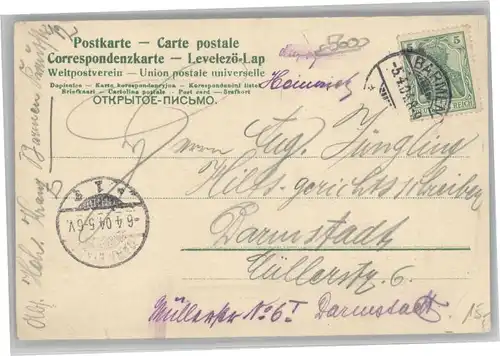 Postkarte — Carte postale
Correspondenzkarte — Levelező-Lap
Weltpostverein — Union postale universelle
Dopisnice — Karta korespondencyjna — Korespondenční lístek
Briefkaart — Cartolina postale — Post card — Brefkort
ОТКРЫТОЕ-ПИСЬМО.
5
REICH
BARMEN
-5.4.04.
Herrn Aug. Jüngling
Hilfs-gerichtsschreiber
Darmstadt
Müllerstr. 6.
Müllerstr No 6 I Darmstadt.
-6.4.04.5-6V.
Abs. Hans Barmen